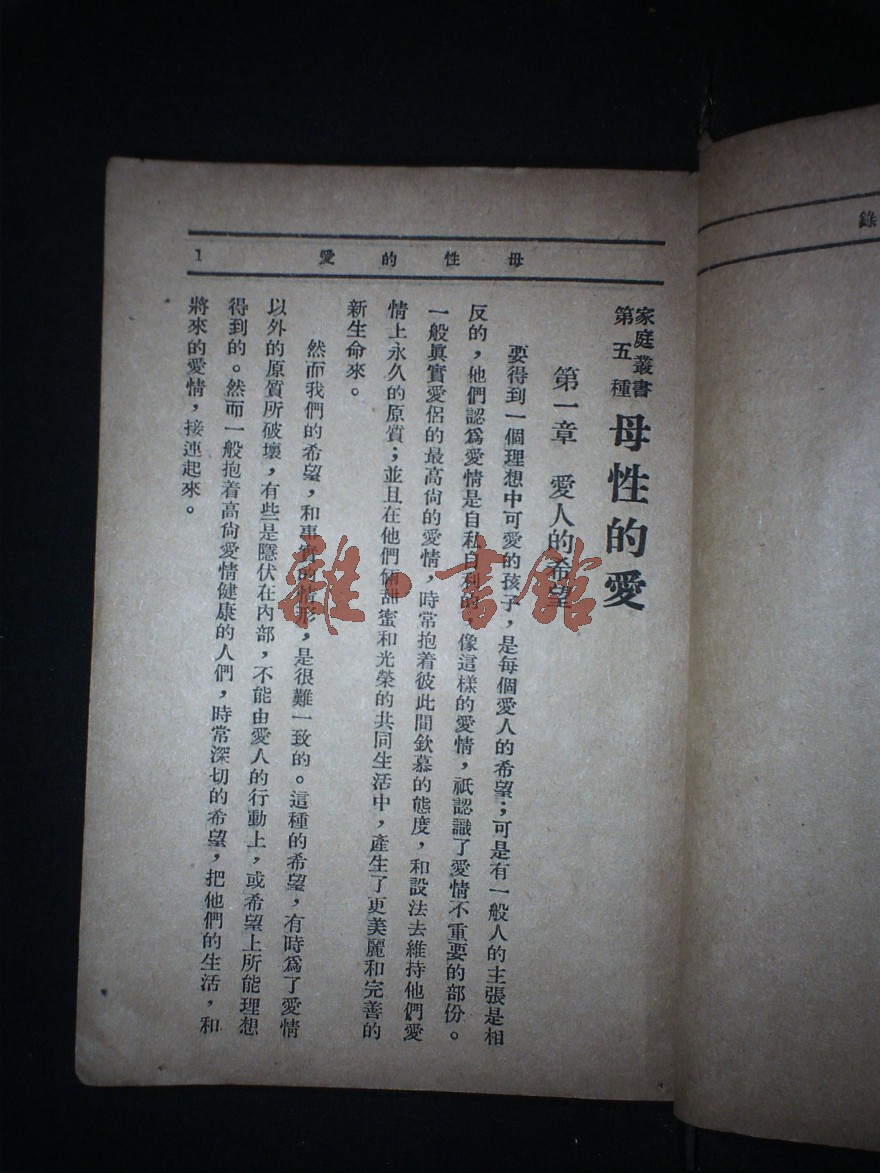 錄
母性的愛 1
家庭叢書
第五種
母性的愛
第一章 愛人的希望
要得到一個理想中可愛的孩子，是每個愛人的希望；可是有一般人的主張是相
反的，他們認爲愛情是自私自利的，像這樣的愛情，祇認識了愛情不重要的部份。
一般眞實愛侶的最高尙的愛情，時常抱着彼此間欽慕的態度，和設法去維持他們愛
情上永久的原質；並且在他們倆甜蜜和光榮的共同生活中，產生了更美麗和完善的
新生命來。
然而我們的希望，和事實的情形，是很難一致的。這種的希望，有時爲了愛情
以外的原質所破壞，有些是隱伏在內部，不能由愛人的行動上，或希望上所能理想
得到的。然而一般抱着高尙愛情健康的人們，時常深切的希望，把他們的生活，和
將來的愛情，接連起來。
雜·書館